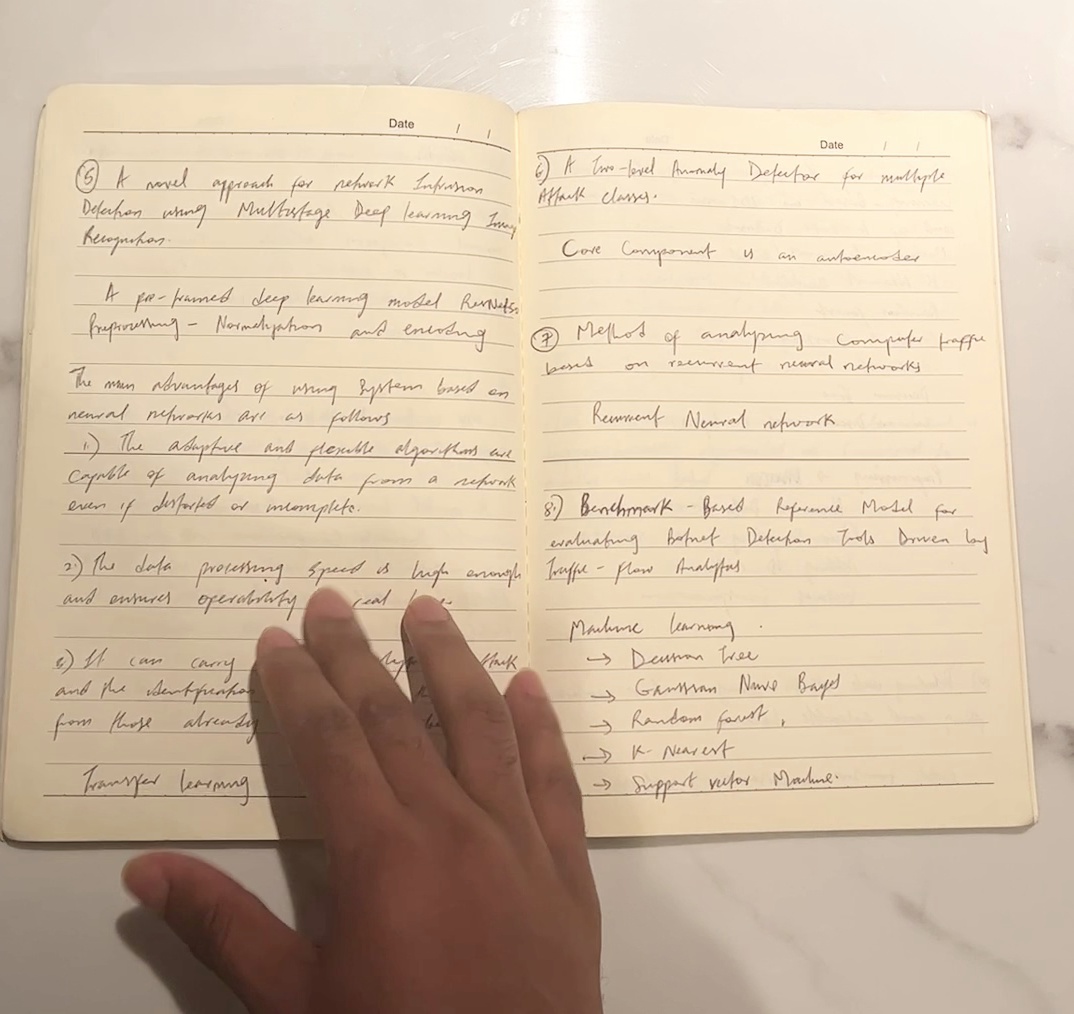 Date / /
⑤ A novel approach for network Intrusion
Detection using Multistage Deep learning Image
Recognition.
A pre-trained deep learning model ResNet50
Preprocessing - Normalization and encoding
The main advantages of using System based on
neural networks are as follows
1.) The adaptive and flexible algorithms are
capable of analyzing data from a network
even if distorted or incomplete.
2.) The data processing speed is high enough
and ensures operability real
3) It can carry
and the identification
from those already
Transfer learning
Date / /
6) A Two-level Anomaly Detector for multiple
Attack classes.
Core Component is an autoencoder
⑦ Method of analyzing Computer traffic
based on recurrent neural networks
Recurrent Neural network
8.) Benchmark - Based Reference Model for
evaluating Botnet Detection Tools Driven by
Traffic - Flow Analytics
Machine learning.
→ Decision Tree
→ Gaussian Naive Bayes
→ Random forest,
→ K-Nearest
→ Support vector Machine.